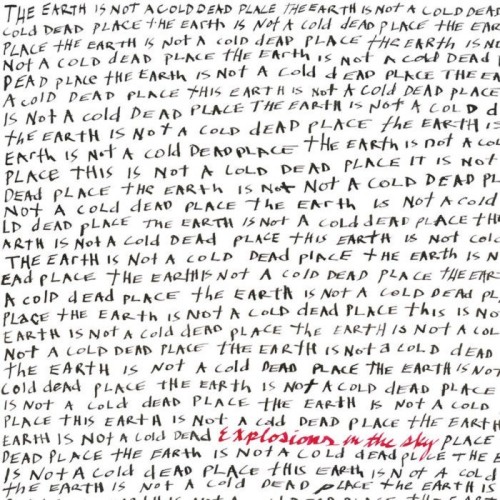 THE EARTH IS NOT A COLD DEAD PLACE THE EARTH IS NOT A COLD DEAD
COLD DEAD PLACE THE EARTH IS NOT A COLD DEAD PLACE THE EAR
PLACE THE EARTH IS NOT A COLD DEAD PLACE THE EARTH IS NO
NOT A COLD DEAD PLACE THE EARTH IS NOT A COLD DEAD
DEAD PLACE THE EARTH IS NOT A COLD DEAD PLACE THE EA
A COLD DEAD PLACE THIS EARTH IS NOT A COLD DEAD PLACE
IS NOT A COLD DEAD PLACE THE EARTH IS NOT A COLD d
the EARTH IS NOT A COLD dEAD PLACE the EARTH IS
EARTH IS NOT A cold DEAD PLACE THE EARTH IS NOT A COL
PLACE THIS IS NOT A COLD DEAD PLACE IT IS NOT
DEAD PLACE THE EARTH IS NOT NOT A COLD DEAD PL
NOT A COLD dEAD PLACE THE EARTH IS NOT A COLD
LD DEAD PLACE THE EARTH IS NOT A COLD DEAD PLACE TH
ARTH IS NOT A Cold DEAD PLACE THIS EARTH IS NOT COL
THE EARTH IS NOT A COLD DEAD PLACE THE EARTH IS N
EAD PLACE THE EARTH IS NOT A COLD DEAD PLACE THE EAR
A COLD DEAD PLACE THE EARTH IS NOT A COLD DEAD PL
PLACE THE EARTH IS NOT A COLD DEAD PLACE this IS NO
EARTH IS NOT A COLD DEAD PLACE THE EARTH IS NOT A COL
NOT A COLD DEAD PLACE THE EARTH IS NOT A COLD DEAD
the EARTH IS NOT A COLD DEAD PLACE THE EARTH IS NOT
COLD DEAD PLACE THE EARTH IS NOT A COLD DEAD PLACE
IS NOT A COLD DEAD PLACE THE EARTH IS NOT A COLD
PLACE THIS EARTH IS NOT A COLD DEAD PLACE THE EARTH
EARTH IS NOT A COLD DEAD Explosions in the sky PLACE
DEAD PLACE THE EARTH IS NOT A COLD DEAD PLACE THE E
IS NOT A COLD DEAD PLACE THIS EARTH IS NOT A COLD
THE EARTH IS NOT A COLD DEAD PLACE THE EARTH